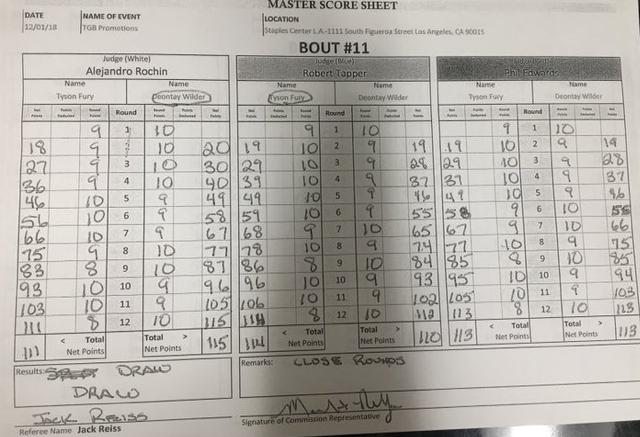 MASTER SCORE SHEET
DATE NAME OF EVENT LOCATION
12/01/18 TGB Promotions Staples Center L.A.-1111 South Figueroa Street Los Angeles, CA 90015
BOUT #11
Judge (White) Judge (Blue)
Alejandro Rochin Robert Tapper Phil Edwards
Name Name Name Name Name Name
Tyson Fury Deontay Wilder Tyson Fury Deontay Wilder Tyson Fury Deontay Wilder
Net Points Points Deducted Round Points Round Round Points Points Deducted Net Points Net Points Points Deducted Round Points Round Round Points Points Deducted Net Points Net Points Points Deducted Round Points Round Round Points Points Deducted Net Points
9 1 10 9 1 10 9 1 10
18 9 2 10 20 19 10 2 9 19 19 10 2 9 19
27 9 3 10 30 29 10 3 9 28 29 10 3 9 28
36 9 4 10 40 39 10 4 9 37 39 10 4 9 37
46 10 5 9 49 49 10 5 9 46 49 10 5 9 46
56 10 6 9 58 59 10 6 9 55 58 9 6 10 56
66 10 7 9 67 68 9 7 10 65 67 9 7 10 66
75 9 8 10 77 78 10 8 9 74 77 10 8 9 75
83 8 9 10 87 86 8 9 10 84 85 8 9 10 85
93 10 10 9 96 96 10 10 9 93 95 10 10 9 94
103 10 11 9 105 106 10 11 9 102 105 10 11 9 103
111 8 12 10 115 114 8 12 10 112 113 8 12 10 113
< Total Total > < Total Total > < Total Total >
111 Net Points Net Points 115 114 Net Points Net Points 110 113 Net Points Net Points 113
Results: DRAW Remarks: CLOSE ROUNDS
DRAW
Jack Reiss
Referee Name Jack Reiss Signature of Commission Representative